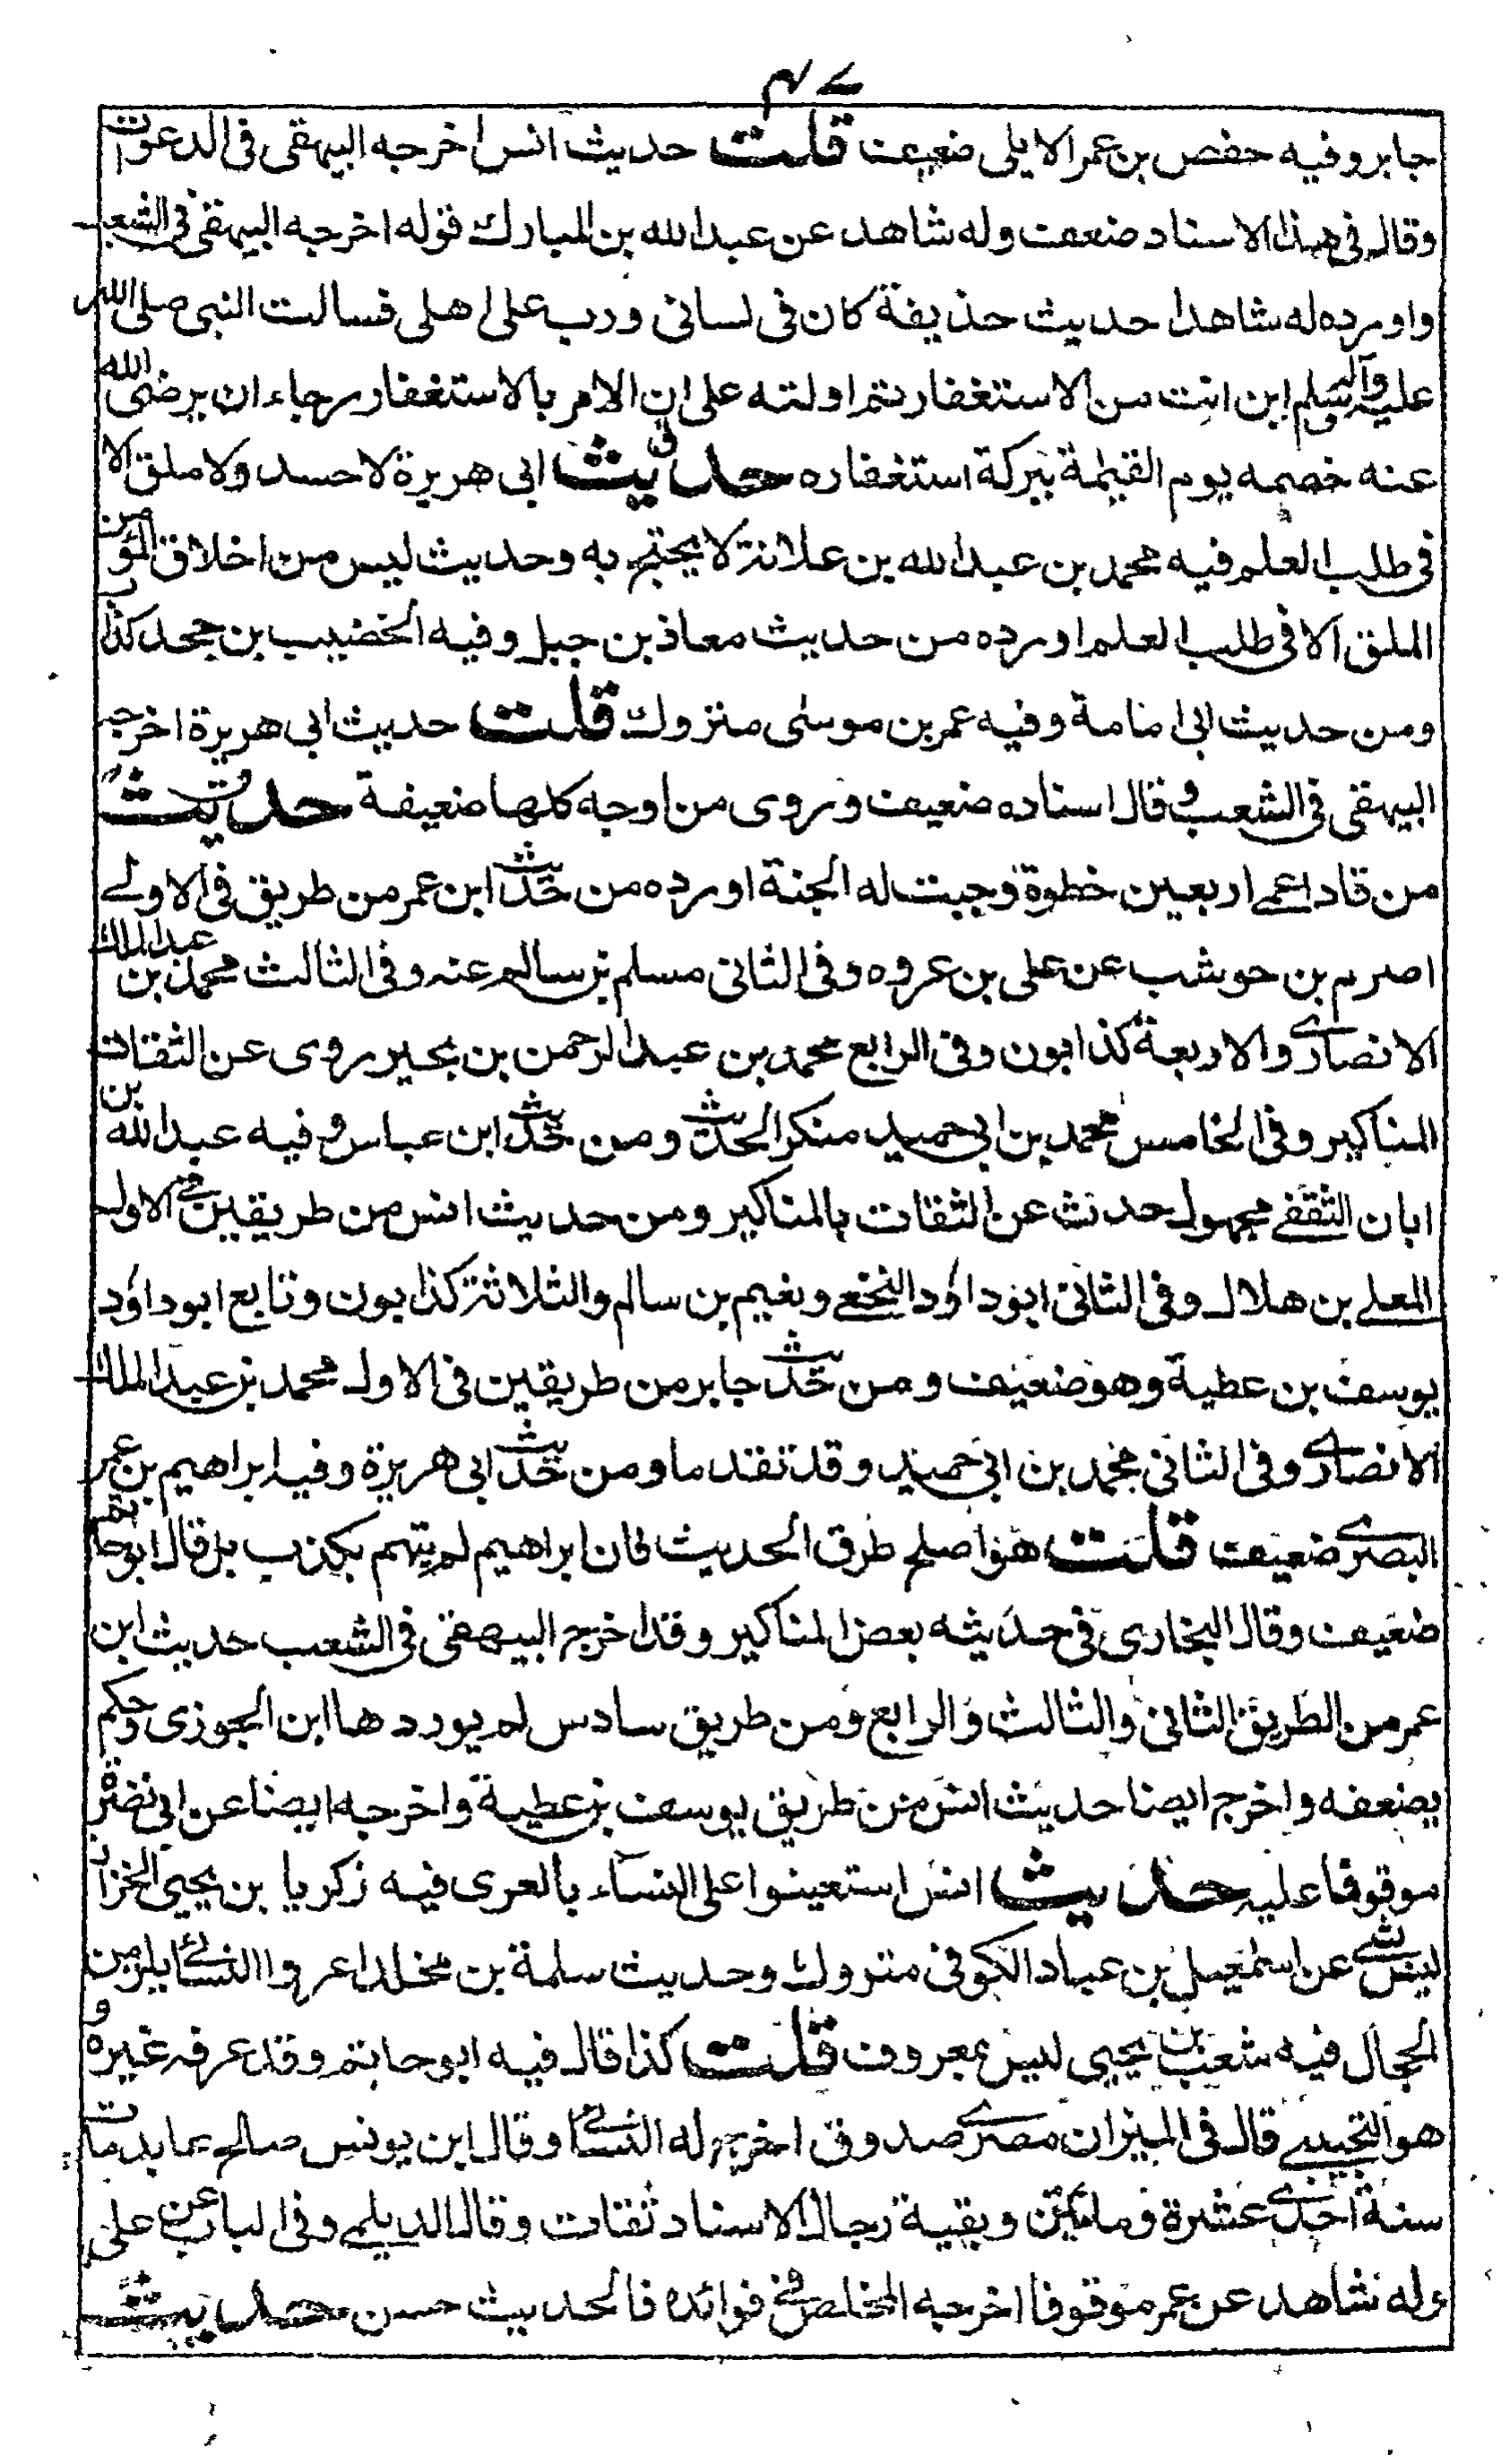 ٤٧
جابر وفيه حفص بن عمر الايلى ضعيف قلت حديث انس اخرجه البيهقى فى الدعوات
وقال فى هذا الاسناد ضعف وله شاهد عن عبد الله بن المبارك قوله اخرجه البيهقى فى الشعب
واورده له شاهدا حديث حذيفة كان فى لسانى ذرب على اهلى فسالت النبى صلى الله
عليه وآله وسلم اين انت من الاستغفار ثم اولته على ان الامر بالاستغفار رجاء ان يرضى الله
عنه خصمه يوم القيمة ببركة استغفاره حديث ابى هريرة لا حسد ولا ملق الا
فى طلب العلم فيه محمد بن عبد الله بن علاثة لا يحتج به وحديث ليس من اخلاق المؤمن
الملق الا فى طلب العلم اورده من حديث معاذ بن جبل وفيه الخضيب بن جحد كذاب
ومن حديث ابى امامة وفيه عمر بن موسى متروك قلت حديث ابى هريرة اخرجه
البيهقى فى الشعب وقال اسناده ضعيف وروى من اوجه كلها ضعيفة حديث
من قاد اعمى اربعين خطوة وجبت له الجنة اورده من حديث ابن عمر من طريق فى الاولے
اصرم بن حوشب عن على بن عروه وفى الثانى مسلم بن سالم عنه وفى الثالث محمد بن عبد الملك
الانصارى والاربعة كذابون وفى الرابع محمد بن عبد الرحمن بن بحير روى عن الثقات
المناكير وفى الخامس محمد بن ابى حميد منكر الحديث ومن حديث ابن عباس وفيه عبد الله بن
ابان الثقفے مجهول حدث عن الثقات بالمناكير ومن حديث انس من طريقين فى الاول
المعلے بن هلال وفى الثانى ابو داؤد النخعے ويغيم بن سالم والثلاثة كذابون وتابع ابو داؤد
يوسف بن عطية وهو ضعيف ومن حديث جابر من طريقين فى الاول محمد بن عبد الملك
الانصارى وفى الثانى محمد بن ابى حميد وقد تقدما ومن حديث ابى هريرة وفيه ابراهيم بن عمر
البصرى ضعيف قلت هو اصلح طرق الحديث فان ابراهيم لم يتهم بكذب بل قال ابو حاتم
ضعيف وقال البخارى فى حديثه بعض المناكير وقد اخرج البيهقى فى الشعب حديث ابن
عمر من الطريق الثانى والثالث والرابع ومن طريق سادس لم يوردها ابن الجوزى وحكم
بضعفه واخرج ايضا حديث انس من طريق يوسف بن عطية واخرجه ايضا عن ابى نضرة
موقوفا عليه حديث انس استعينوا على النساء بالعرى فيه زكريا بن يحيى الخزاز
ليس بشے عن اسمعيل بن عباد الكوفى متروك وحديث سلمة بن مخلد اعروا النساء يلزمن
الحجال فيه شعيب بن يحيى ليس بمعروف قلت كذا قال فيه ابو حاتم وقد عرفه غيره و
هو التجيبے قال فى الميزان مصرى صدوق اخرج له النسائے وقال ابن يونس صالح عابد مات
سنة احدى عشرة ومائتين وبقية رجال الاسناد ثقات وقال الديلمے وفى الباب عن على
وله شاهد عن عمر موقوفا اخرجه المخلص فى فوائده فالحديث حسن حديث